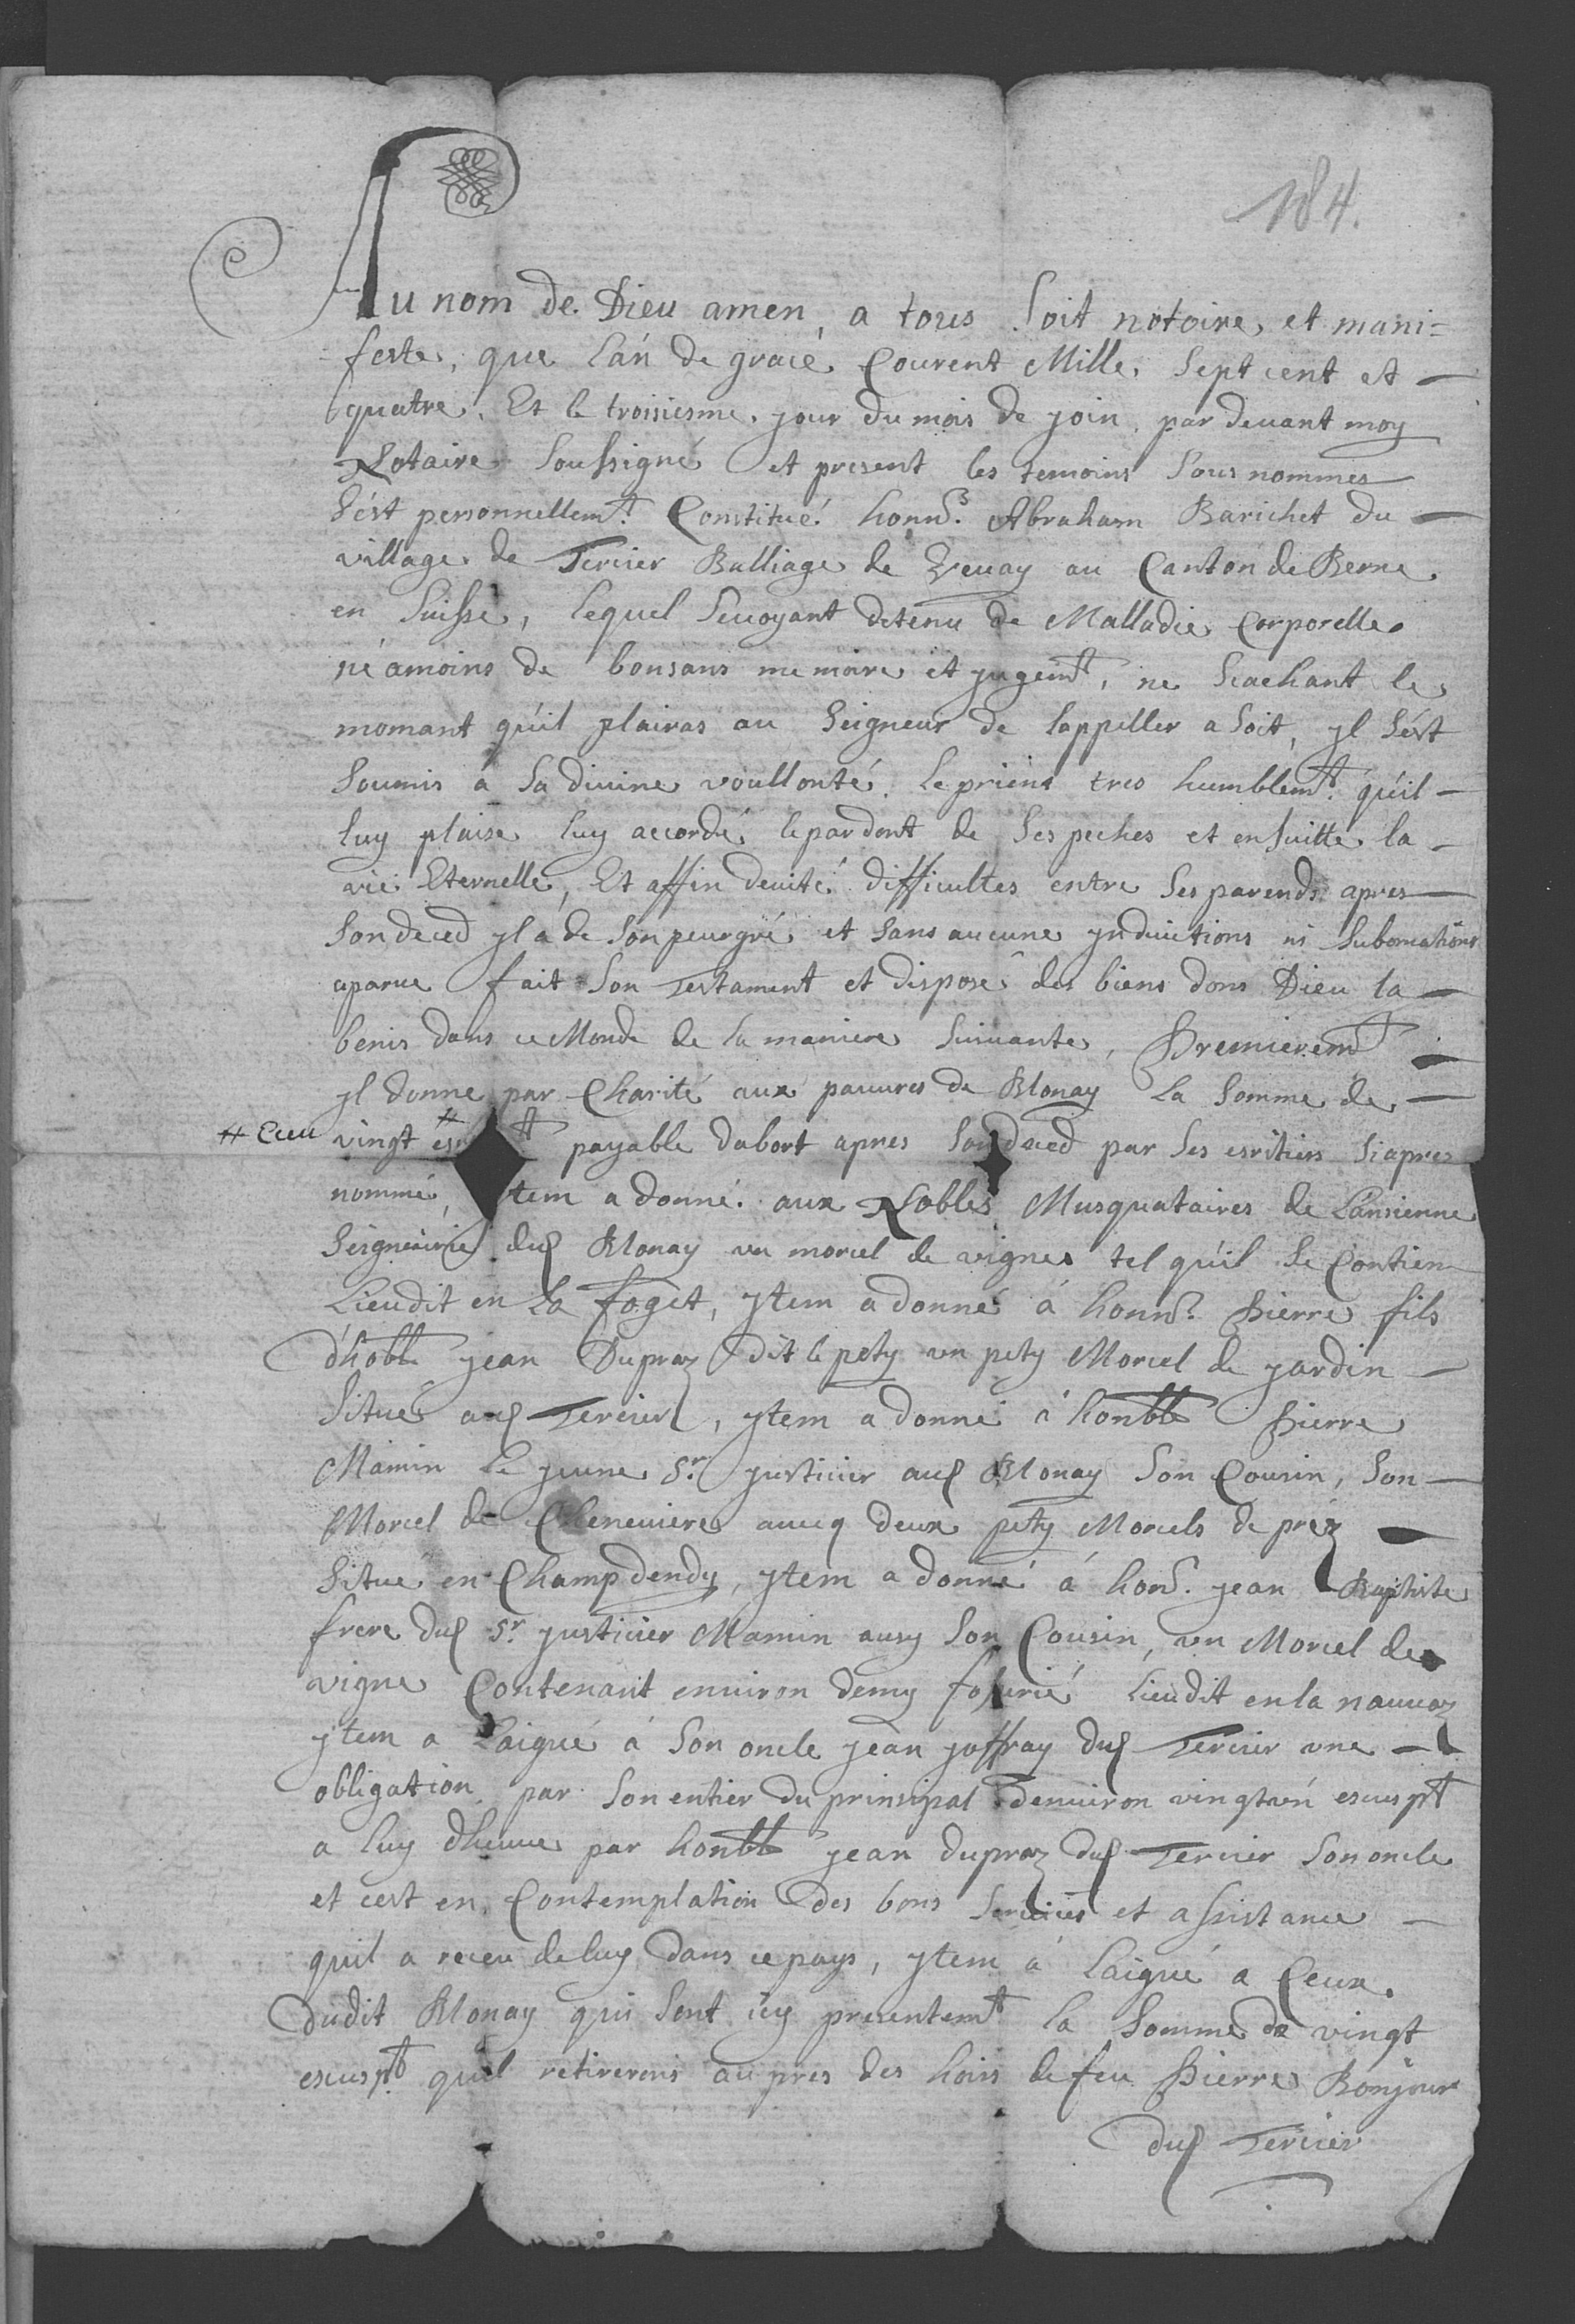 184.
Au nom de Dieu amen, a tous soit notoire et mani=
feste, que l'an de gracé Courent Mille, Sept cent et
quatre, Et le troisiesme, jour du mois de join, par devant moy
Notaire Soussigné et present les temoins Sous nommes
S'ést personnellemt. Constitué honn. Abraham Barichet du
village de Tercier Balliage de Vevay au Canton de Berne
en Suisse, lequel Sevoyant detenu de Malladie Corporelle
néamoins de bonsans memoire et jugemt, ne Scachant le
momant qu'il plairas au Seigneur de lappeller a Soit, yl S'ést
Soumis a Sa divine voullonté. Le prient tres humblemt. qu'il
luy plaise luy accordé le pardont de Ses peches et ensuitte la
vie Eternelle, Et affin devité difficultes entre Ses parends apres
Son deced yl a de Son peurgré et Sans aucune ynductions ni Subornations
aparue fait Son Testament et disposé des biens dons Dieu la
benis dans ce Monde de la maniere Suivante, Premieremt
yl donne par Charité aux pauvres de Blonay La Somme de
# Ecu vingt payable dabort apres Son deced par Ses esritiers Siapres
nommé, ytem a donné aux Nobles Musquataires de Lansienne
Seigneurie dud Blonay un morcel de vignes tel qu'il Se Contien
Lieudit en La foget, ytem a donné á honn. Pierre fils
d'hoble jean Dupraz dit le pety un pety Morcel de jardin
Situé aud Tercier, ytem a donné á honble Pierre
Mamin Le jeune Sr. justicier aud Blonay Son Cousin, Son
Morcel de Cheneviere avecq deux pety Morcels de préz
Situé en Champdendy, ytem a donné á hon. jean Baptiste
frere dud Sr. justicier Mamin ausy Son Cousin, un Morcel de
vigne Contenant environ demy fosurié Lieudit en la navvaz
ytem a Laigué á Son oncle jean joffray dud Tercier une
obligation par Son entier du prinsipal denviron vingtun escus pt
a luy dheuue par honble jean dupraz dud Tercier Son oncle
et cest en Contemplation des bons Services et assistance
quil a receu de luy dans ce pays, ytem á Laigué a Ceux
dudit Blonay qui Sont icy presentemt la Somme de vingt
escus pt quil retirerons aupres des hoirs de feu Pierre Bonjour
dud Tercier